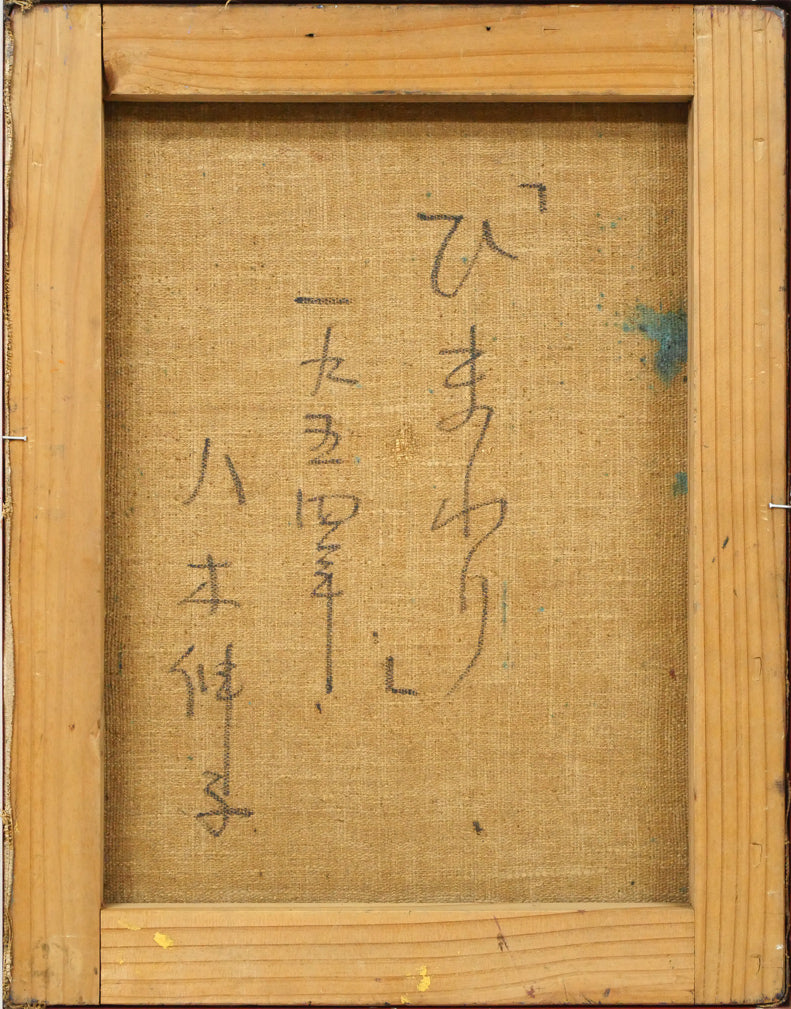 「ひまわり」
一九五四年
八木伸子